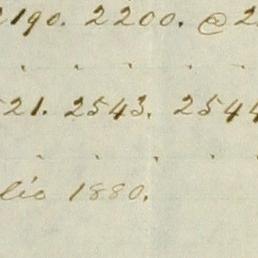 2190. 2200. @ 2
21. 2543. 2544
lio 1880.